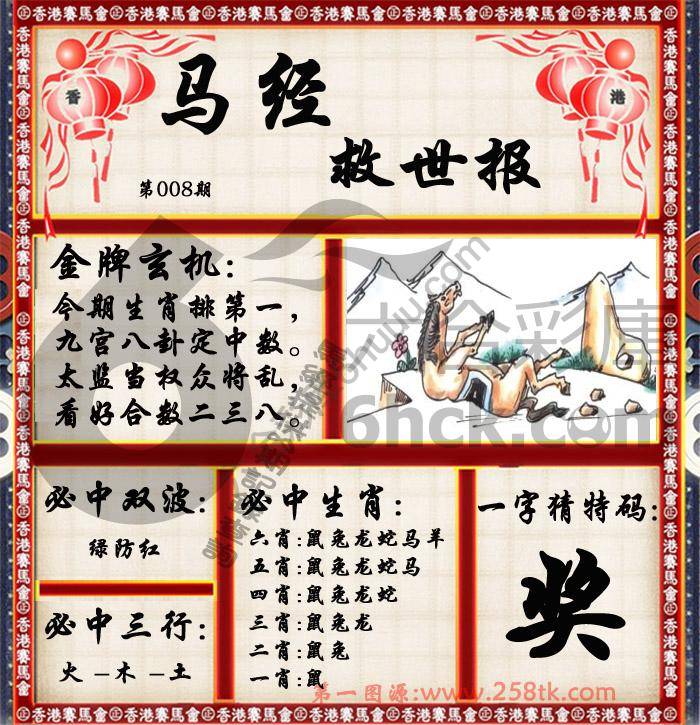 香港賽馬會
香
港
马经
救世报
第008期
金牌玄机:
今期生肖排第一,
九宫八卦定中数。
太监当权众将乱,
看好合数二三八。
六合彩库
6hck.com
必中双波:
绿防红
必中三行:
火–木–土
必中生肖:
六肖:鼠兔龙蛇马羊
五肖:鼠兔龙蛇马
四肖:鼠兔龙蛇
三肖:鼠兔龙
二肖:鼠兔
一肖:鼠
一字猜特码:
奖
第一图源:www.258tk.com